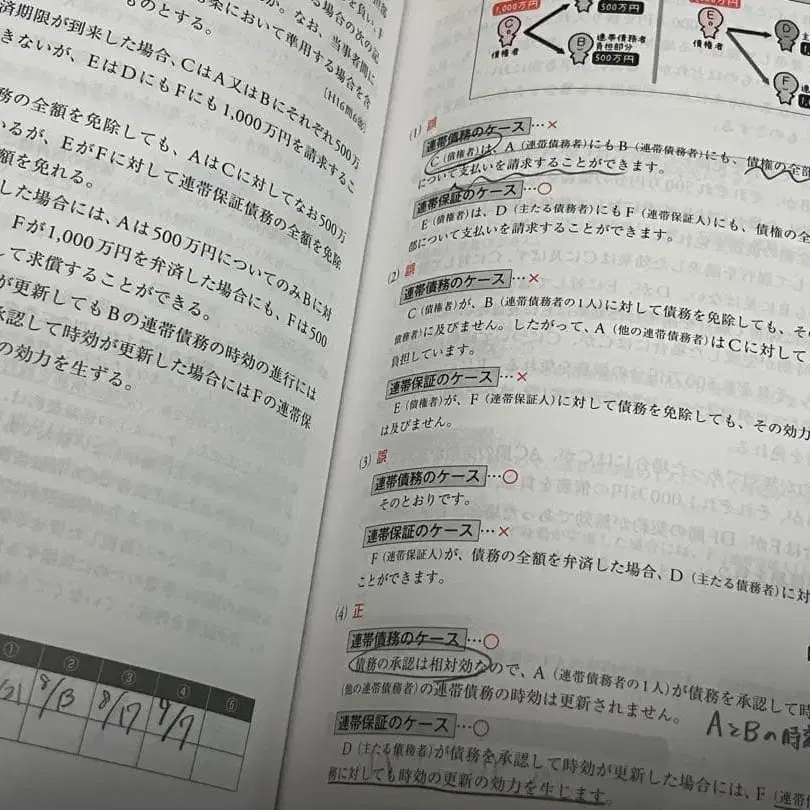 ものとする。
なお、当事者間に
案において準用する場合を含
〔H16問6〕
済期限が到来した場合、CはA又はBにそれぞれ500万
きないが、EはDにもFにも1,000万円を請求するこ
務の全額を免除しても、AはCに対してなお500万
いるが、EがFに対して連帯保証債務の全額を免除
額を免れる。
した場合には、Aは500万円についてのみBに対
Fが1,000万円を弁済した場合にも、Fは500
して求償することができる。
が更新してもBの連帯債務の時効の進行には
承認して時効が更新した場合にはFの連帯保
の効力を生ずる。
① ② ③ ④ ⑤
/21 8/13 8/17 9/7
1,000万円
C
債権者
500万円
B
連帯債務者
負担部分
500万円
E
債権者
D
F
(1) 誤
連帯債務のケース…×
C(債権者)は、A(連帯債務者)にもB(連帯債務者)にも、債権の全部
について支払いを請求することができます。
連帯保証のケース…○
E(債権者)は、D(主たる債務者)にもF(連帯保証人)にも、債権の全
部について支払いを請求することができます。
(2) 誤
連帯債務のケース…×
C(債権者)が、B(連帯債務者の1人)に対して債務を免除しても、そ
債権者)に及びません。したがって、A(他の連帯債務者)はCに対して
負担しています。
連帯保証のケース…×
E(債権者)が、F(連帯保証人)に対して債務を免除しても、その効力
は及びません。
(3) 誤
連帯債務のケース…○
そのとおりです。
連帯保証のケース…×
F(連帯保証人)が、債務の全額を弁済した場合、D(主たる債務者)に対
ことができます。
(4) 正
連帯債務のケース…○
債務の承認は相対効なので、A(連帯債務者の1人)が債務を承認して時
(他の連帯債務者)の連帯債務の時効は更新されません。
AとBの時効
連帯保証のケース…○
D(主たる債務者)が債務を承認して時効が更新した場合には、F(連帯
務に対しても時効の更新の効力を生じます。